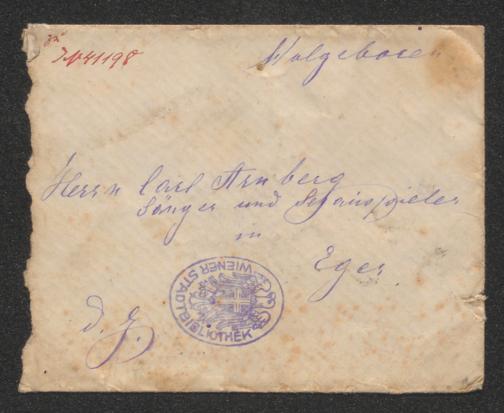 zu
IN 41198
Wolgeboren
Herrn Carl Arnberg
Sänger und Schauspieler
in
Eger.
d. G.
WIENER STADTBIBLIOTHEK